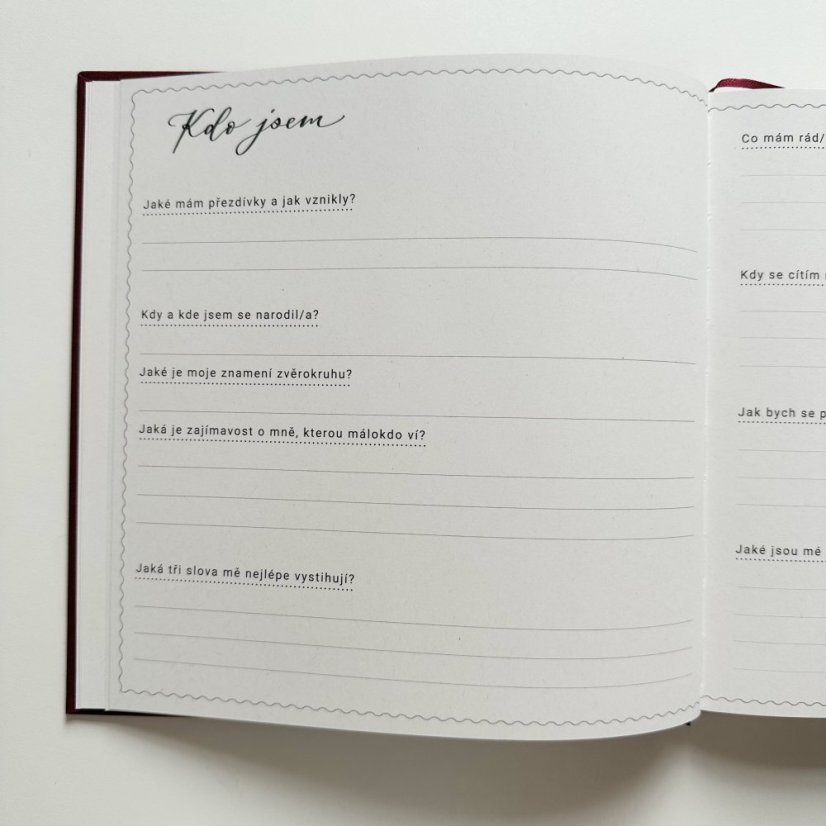 Kdo jsem
Jaké mám přezdívky a jak vznikly?
Kdy a kde jsem se narodil/a?
Jaké je moje znamení zvěrokruhu?
Jaká je zajímavost o mně, kterou málokdo ví?
Jaká tři slova mě nejlépe vystihují?
Co mám rád/
Kdy se cítím
Jak bych se p
Jaké jsou mé